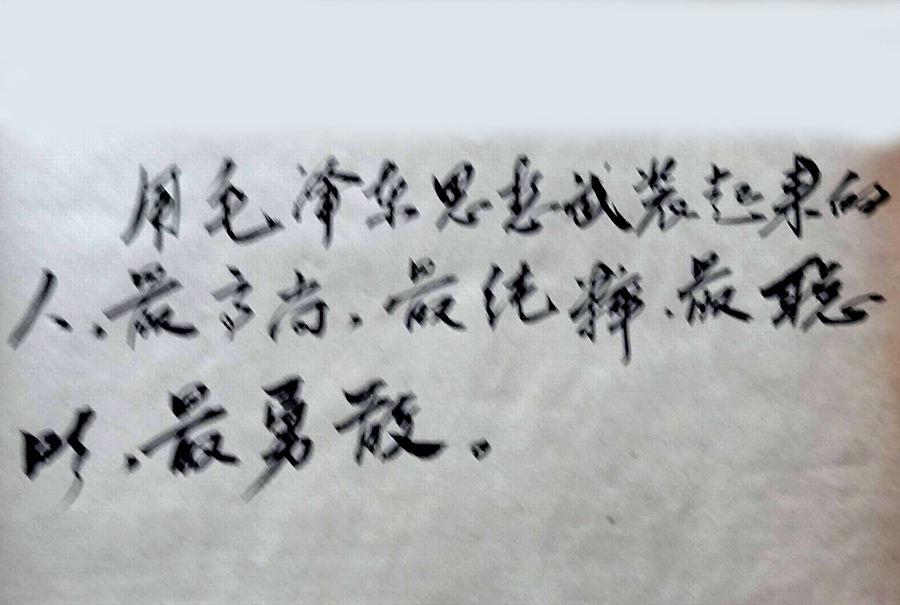 用毛泽东思想武装起来的
人、最高尚、最纯粹、最聪
明、最勇敢。